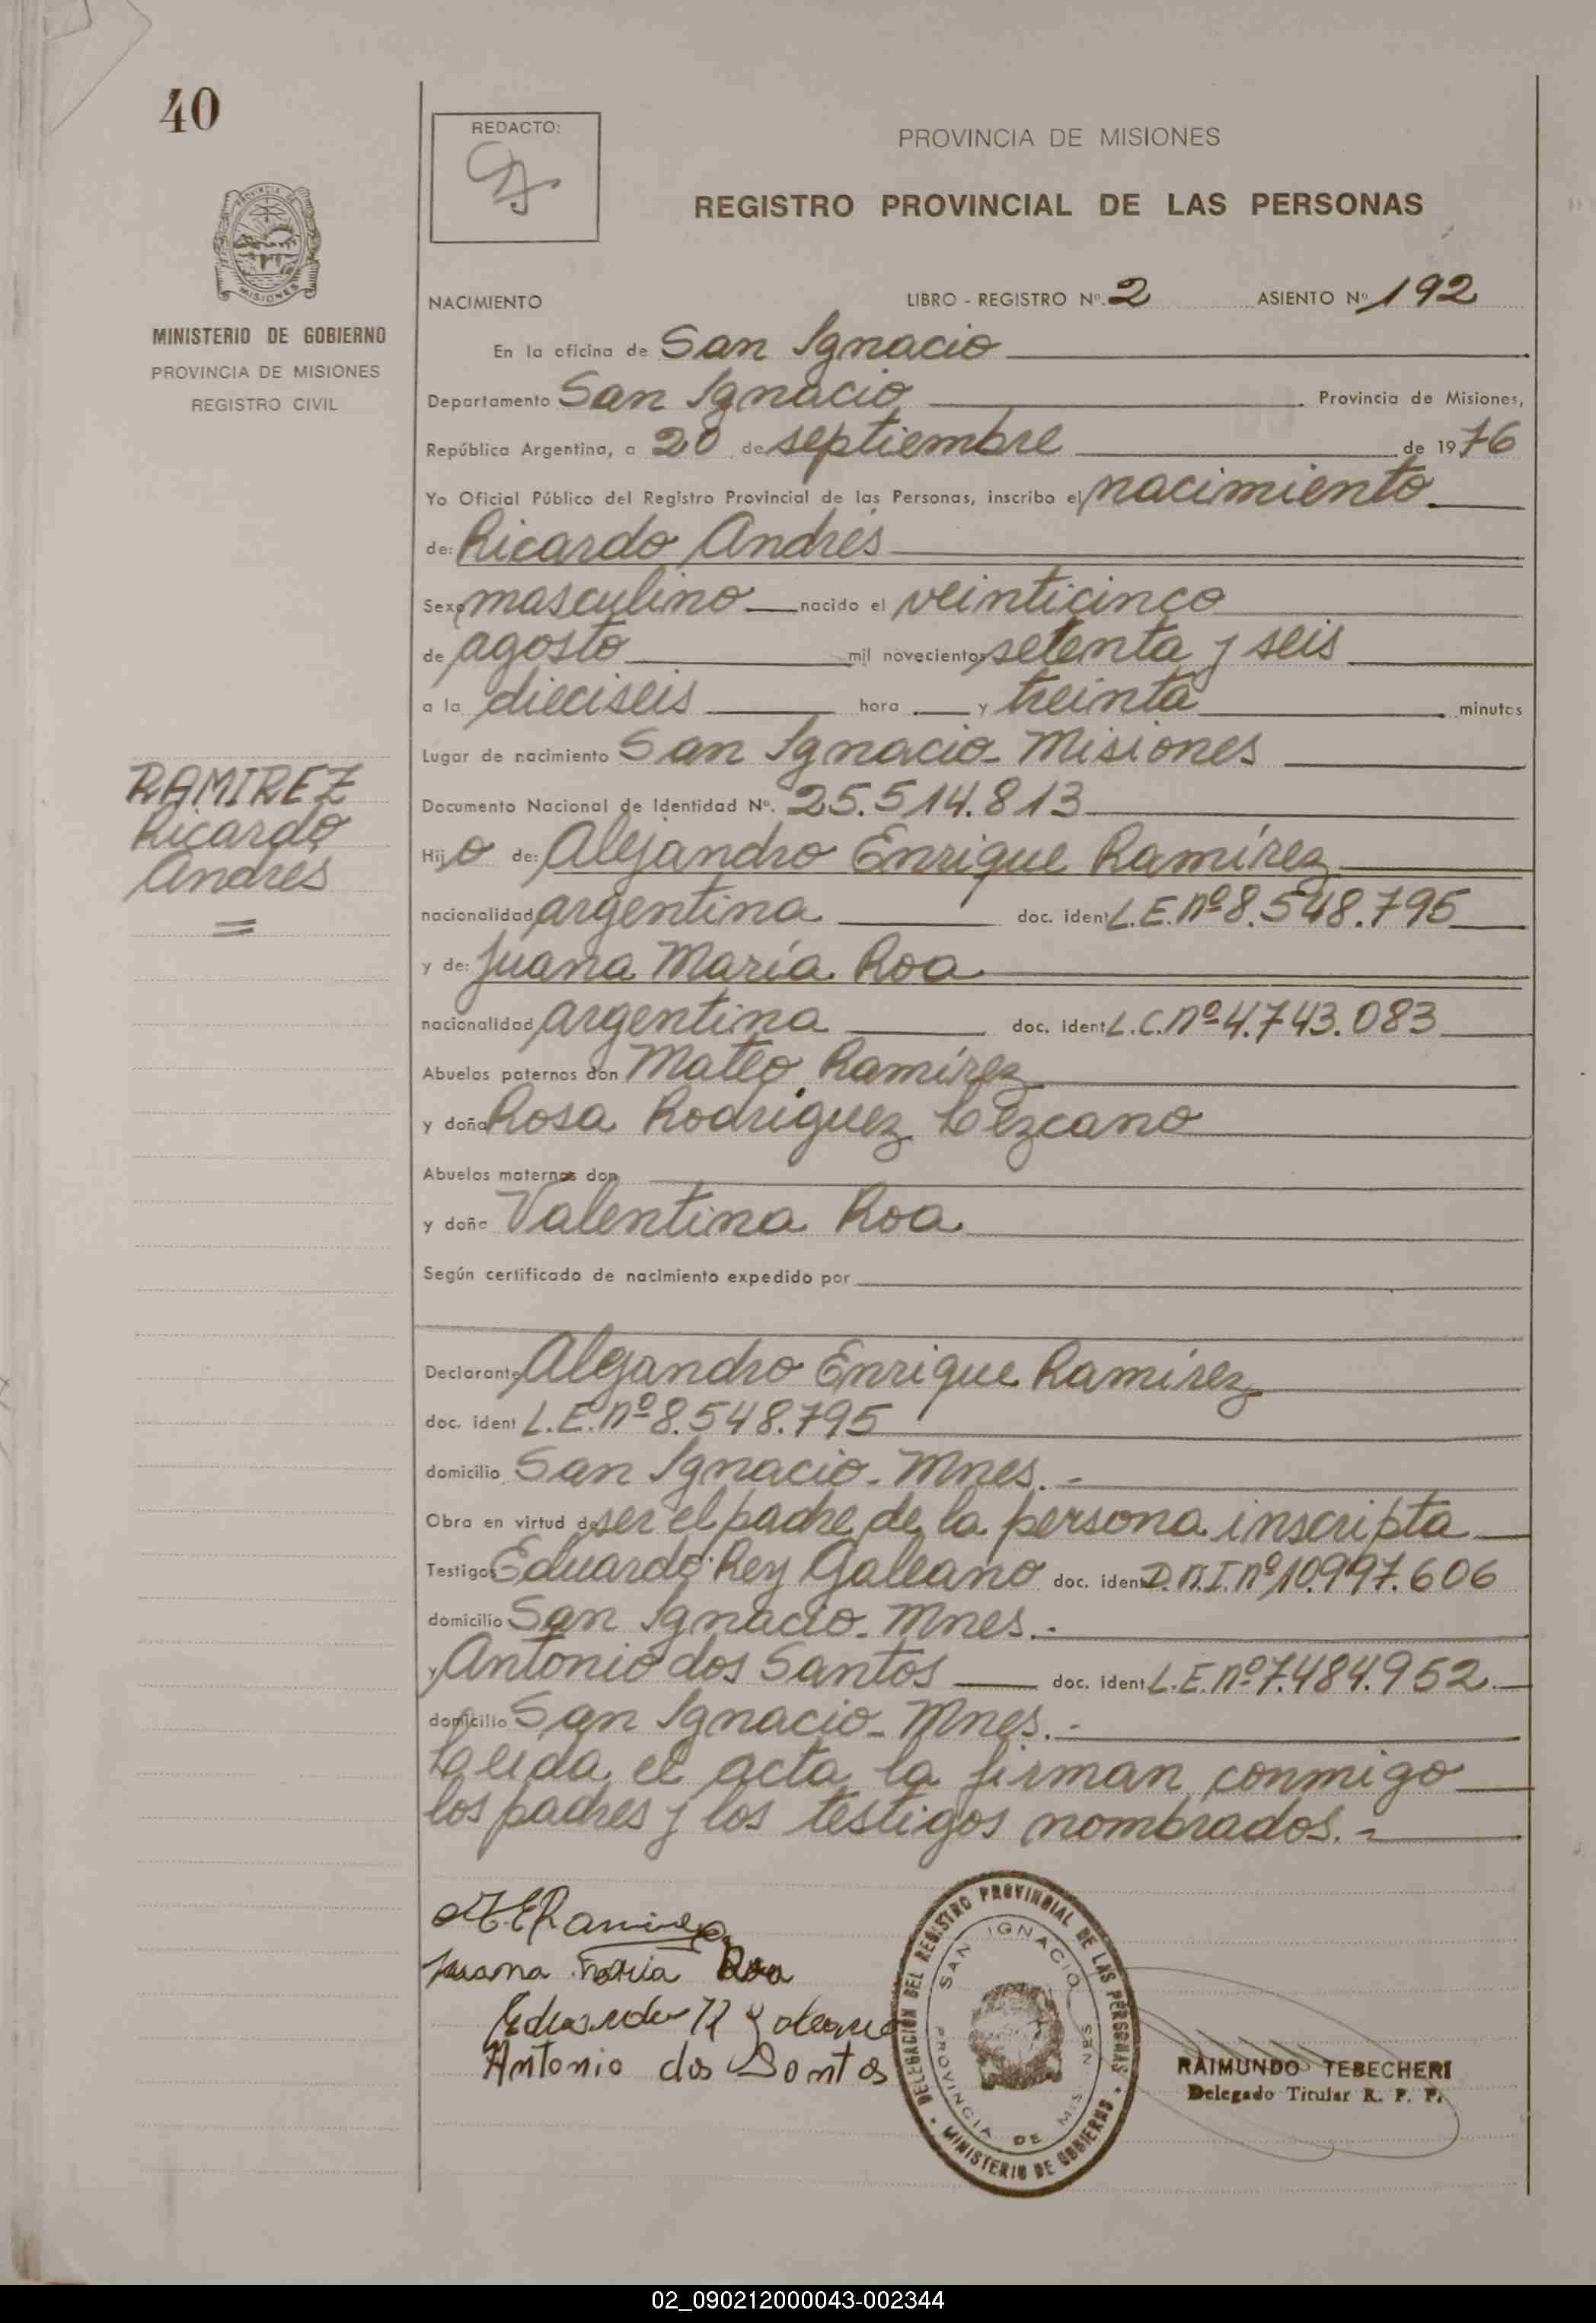 40
REDACTO:
PROVINCIA DE MISIONES
REGISTRO PROVINCIAL DE LAS PERSONAS
PROVINCIA DE
MISIONES
MINISTERIO DE GOBIERNO
PROVINCIA DE MISIONES
REGISTRO CIVIL
NACIMIENTO LIBRO - REGISTRO Nº. 2 ASIENTO Nº 192
En la oficina de San Ignacio
Departamento San Ignacio Provincia de Misiones,
República Argentina, a 20 de septiembre de 1976
Yo Oficial Público del Registro Provincial de las Personas, inscribo el nacimiento
de: Ricardo Andrés
Sexo masculino nacido el veinticinco
de agosto mil novecientos setenta y seis
a la dieciseis hora y treinta minutos
Lugar de nacimiento San Ignacio - Misiones
RAMIREZ
Ricardo
Andrés
Documento Nacional de Identidad Nº. 25.514.813
Hijo de: Alejandro Enrique Ramírez
nacionalidad argentina doc. ident L.E. nº 8.548.795
y de: Juana María Roa
nacionalidad argentina doc. ident L.C. nº 4.743.083
Abuelos paternos don Mateo Ramírez
y doña Rosa Rodríguez Lezcano
Abuelos maternos don
y doña Valentina Roa
Según certificado de nacimiento expedido por
Declarante Alejandro Enrique Ramírez
doc. ident L.E. nº 8.548.795
domicilio San Ignacio - Mnes. -
Obra en virtud de ser el padre de la persona inscripta
Testigos Eduardo Rey Galeano doc. ident D.N.I. nº 10.997.606
domicilio San Ignacio - Mnes. -
y Antonio dos Santos doc. ident L.E. nº 7.484.952
domicilio San Ignacio - Mnes. -
Leida el acta la firman conmigo
los padres y los testigos nombrados. -
A.E Ramirez
Juana Maria Roa
Eduardo R Galeano
Antonio dos Santos
DELEGACION DEL REGISTRO PROVINCIAL DE LAS PERSONAS
MINISTERIO DE GOBIERNO
SAN IGNACIO
PROVINCIA DE MISIONES
RAIMUNDO TEBECHERI
Delegado Titular R. P. P.
02_090212000043-002344